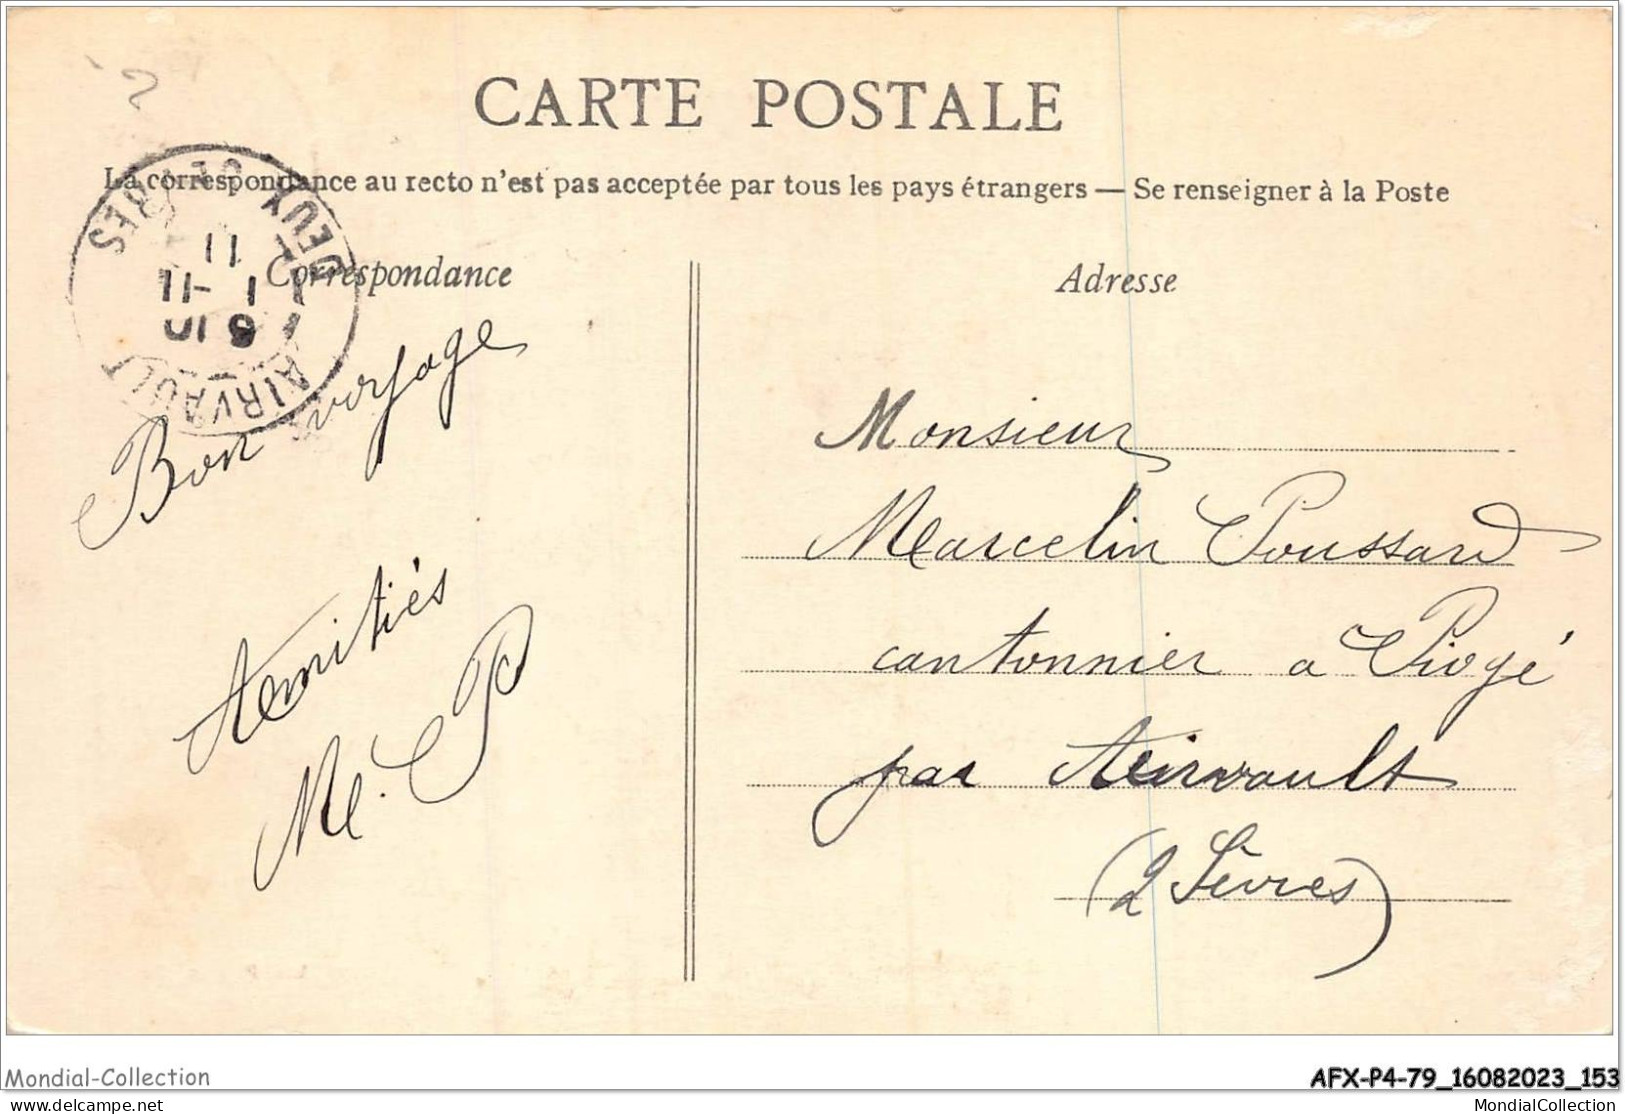 CARTE POSTALE
La correspondance au recto n'est pas acceptée par tous les pays étrangers — Se renseigner à la Poste
AIRVAULT
6 10
1 -11
11
DEUX SEVRES
Correspondance
Bon voyage
Amitiés
M. P
Adresse
Monsieur
Marcelin Poussard
cantonnier a Piogé
par Airvault
(2 Sèvres)
Mondial-Collection
AFX-P4-79_16082023_153
MondialCollection.be
MondialCollection